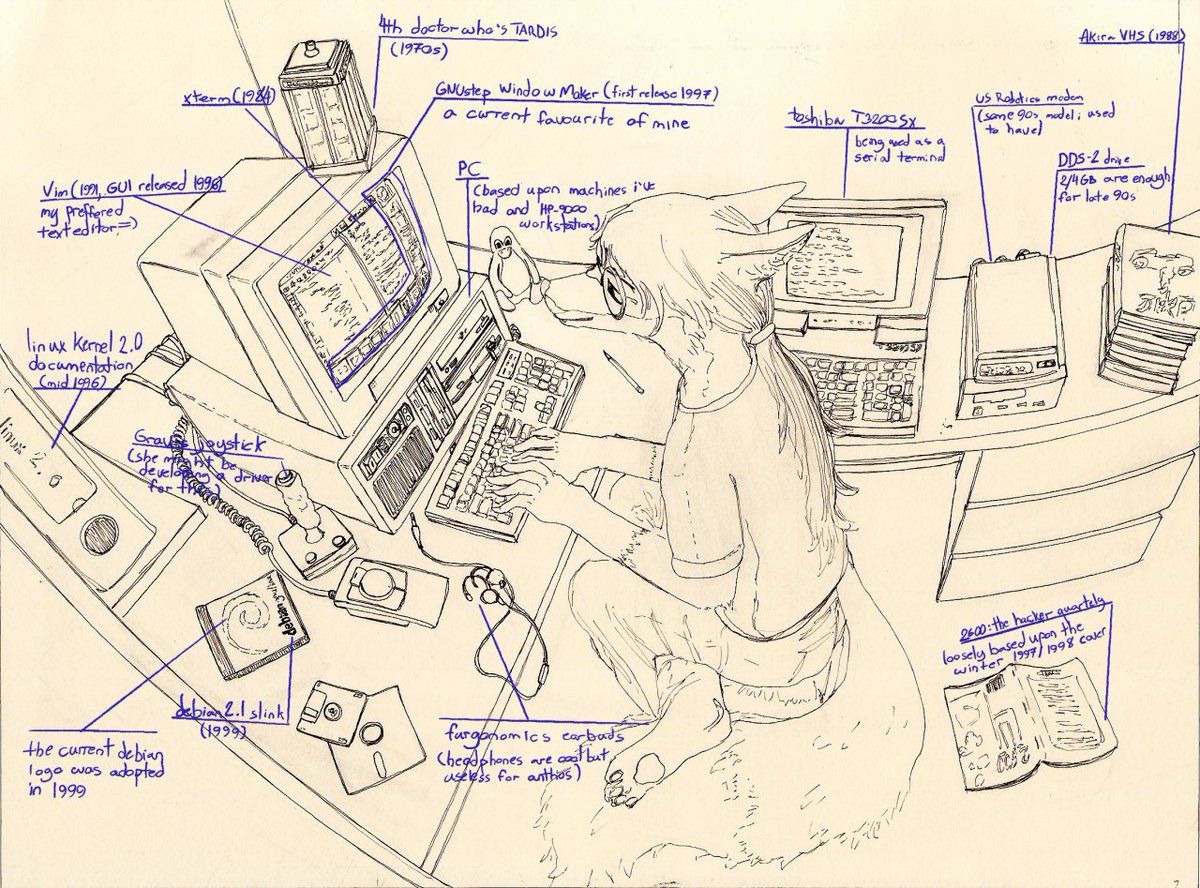 4th doctor who's TARDIS
(1970s)
xterm (1984)
GNUstep Window Maker (first release 1997)
a current favourite of mine
Akira VHS (1988)
US Robotics modem
(some 90s model i used
to have)
toshiba T3200SX
being used as a
serial terminal
DDS-2 drive
2/4GB are enough
for late 90s
PC
(based upon machines i've
had and HP-9000
workstations)
Vim (1991, GUI released 1996)
my preffered
text editor =)
linux kernel 2.0
documentation
(mid 1996)
linux
2.0
Gravis joystick
(she might be
developing a driver
for this)
debian gnu/linux
debian 2.1 slink
(1999)
the current debian
logo was adopted
in 1999
furgonomics earbuds
(headphones are cool but
useless for anthros)
2600: the hacker quartely
loosely based upon the
winter 1997/1998 cover